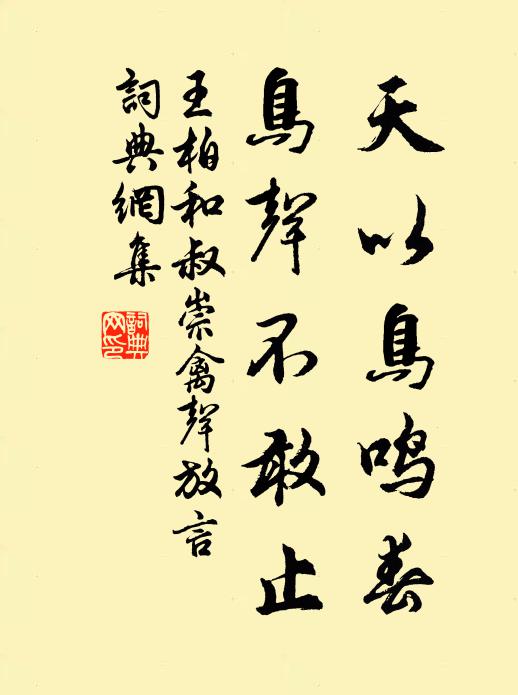 天以鳥鳴春
鳥聲不敢止
王柏和叔崇禽聲放言
詞典網集
詞典网印